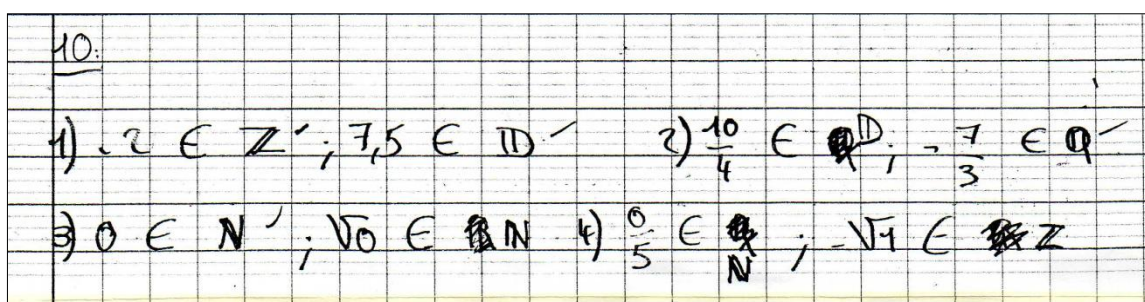 10:
1) -2 ∈ ℤ ; 7,5 ∈ 𝔻 2) 10/4 ∈ 𝔻 ; -7/3 ∈ ℚ
3) 0 ∈ ℕ ; √0 ∈ ℕ 4) 0/5 ∈ ℕ ; -√1 ∈ ℤ